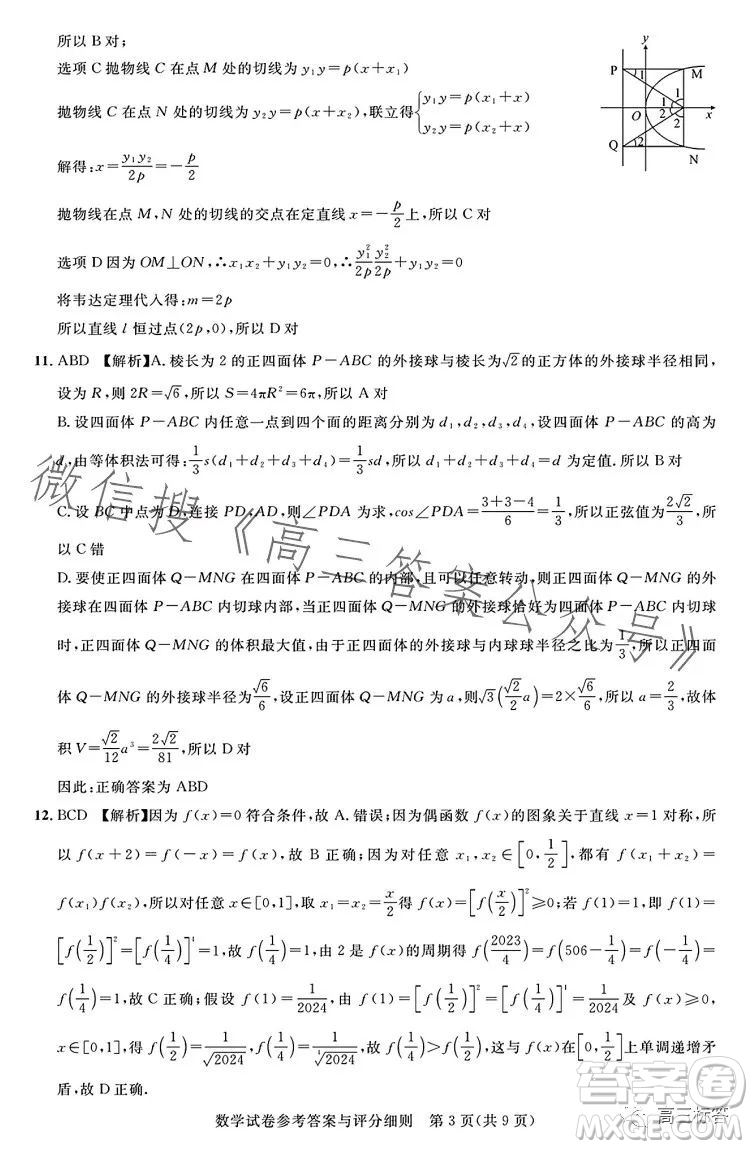 所以 B 对;
选项 C 抛物线 C 在点 M 处的切线为 y₁y=p(x+x₁)
抛物线 C 在点 N 处的切线为 y₂y=p(x+x₂),联立得{y₁y=p(x₁+x) y₂y=p(x₂+x)
解得:x=y₁y₂/2p=-p/2
抛物线在点 M,N 处的切线的交点在定直线 x=-p/2上,所以 C 对
选项 D 因为 OM⊥ON,∴x₁x₂+y₁y₂=0,∴y₁²/2p y₂²/2p+y₁y₂=0
将韦达定理代入得:m=2p
所以直线 l 恒过点(2p,0),所以 D 对
y
P 1 M
1
O 2 x
2
Q 2 N
11. ABD 【解析】A. 棱长为 2 的正四面体 P-ABC 的外接球与棱长为√2的正方体的外接球半径相同,
设为 R,则 2R=√6,所以 S=4πR²=6π,所以 A 对
B. 设四面体 P-ABC 内任意一点到四个面的距离分别为 d₁,d₂,d₃,d₄,设四面体 P-ABC 的高为
d,由等体积法可得:1/3s(d₁+d₂+d₃+d₄)=1/3sd,所以 d₁+d₂+d₃+d₄=d 为定值.所以 B 对
C. 设 BC 中点为 D,连接 PD,AD,则∠PDA 为求,cos∠PDA=(3+3-4)/6=1/3,所以正弦值为2√2/3,所
以 C 错
D. 要使正四面体 Q-MNG 在四面体 P-ABC 的内部,且可以任意转动,则正四面体 Q-MNG 的外
接球在四面体 P-ABC 内切球内部,当正四面体 Q-MNG 的外接球恰好为四面体 P-ABC 内切球
时,正四面体 Q-MNG 的体积最大值,由于正四面体的外接球与内球球半径之比为1/3,所以正四面
体 Q-MNG 的外接球半径为√6/6,设正四面体 Q-MNG 为 a,则√3(√2/2 a)=2×√6/6,所以 a=2/3,故体
积 V=√2/12 a³=2√2/81,所以 D 对
因此:正确答案为 ABD
12. BCD 【解析】因为 f(x)=0 符合条件,故 A. 错误;因为偶函数 f(x)的图象关于直线 x=1 对称,所
以 f(x+2)=f(-x)=f(x),故 B 正确;因为对任意 x₁,x₂∈[0,1/2],都有 f(x₁+x₂)=
f(x₁)f(x₂),所以对任意 x∈[0,1],取 x₁=x₂=x/2得 f(x)=[f(x/2)]²≥0;若 f(1)=1,即 f(1)=
[f(1/2)]²=[f(1/4)]⁴=1,故 f(1/4)=1,由 2 是 f(x)的周期得 f(2023/4)=f(506-1/4)=f(-1/4)=
f(1/4)=1,故 C 正确;假设 f(1)=1/2024,由 f(1)=[f(1/2)]²=[f(1/4)]⁴=1/2024及 f(x)≥0,
x∈[0,1],得 f(1/2)=1/√2024,f(1/4)=1/⁴√2024,故 f(1/4)>f(1/2),这与 f(x)在[0,1/2]上单调递增矛
盾,故 D 正确.
数学试卷参考答案与评分细则 第 3 页(共 9 页)
微信搜《高三答案公众号》
高三标答
答案圈